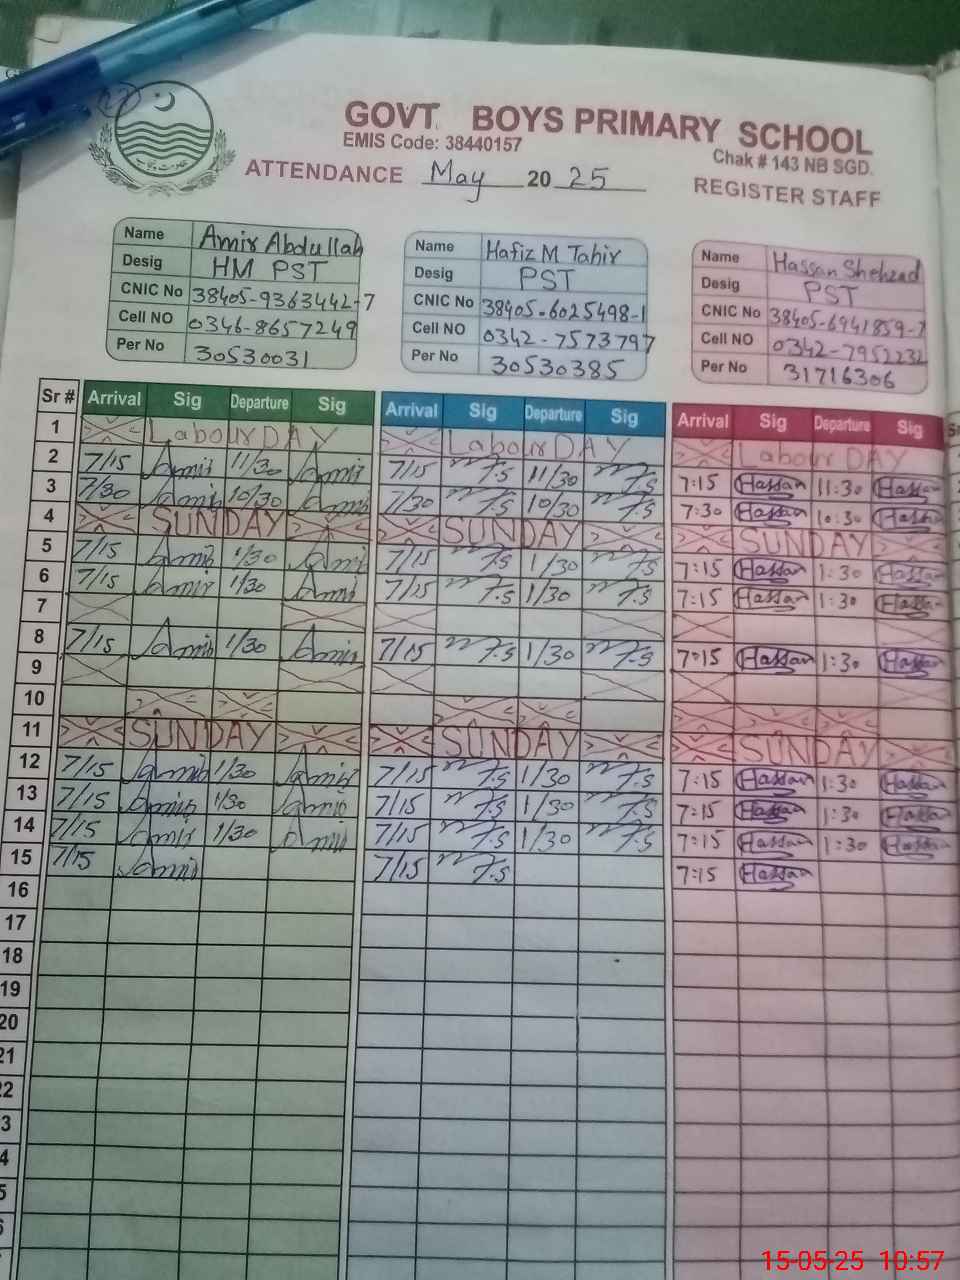 GOVT. BOYS PRIMARY SCHOOL
EMIS Code: 38440157
Chak # 143 NB SGD.
ATTENDANCE May 2025
REGISTER STAFF
Name Amir Abdullah
Desig HM PST
CNIC No 38405-9363442-7
Cell NO 0346-8657249
Per No 30530031
Name Hafiz M Tahir
Desig PST
CNIC No 38405-6025498-1
Cell NO 0342-7573797
Per No 30530385
Name Hassan Shehzad
Desig PST
CNIC No 38405-6941859-7
Cell NO 0342-7952232
Per No 31716306
Sr # Arrival Sig Departure Sig Arrival Sig Departure Sig Arrival Sig Departure Sig
1 Labour DAY Labour DAY Labour DAY
2 7/15 Amir 11/30 Amir 7/15 11/30 7:15 Hassan 11:30 Hassan
3 7/30 Amir 10/30 Amir 7/30 10/30 7:30 Hassan 10:30 Hassan
4 SUNDAY SUNDAY SUNDAY
5 7/15 Amir 1/30 Amir 7/15 1/30 7:15 Hassan 1:30 Hassan
6 7/15 Amir 1/30 Amir 7/15 1/30 7:15 Hassan 1:30 Hassan
7
8 7/15 Amir 1/30 Amir 7/15 1/30 7:15 Hassan 1:30 Hassan
9
10
11 SUNDAY SUNDAY SUNDAY
12 7/15 Amir 1/30 Amir 7/15 1/30 7:15 Hassan 1:30 Hassan
13 7/15 Amir 1/30 Amir 7/15 1/30 7:15 Hassan 1:30 Hassan
14 7/15 Amir 1/30 Amir 7/15 1/30 7:15 Hassan 1:30 Hassan
15 7/15 Amir 7/15 7:15 Hassan
16
17
18
19
20
21
22
3
4
5
6
15-05-25 10:57